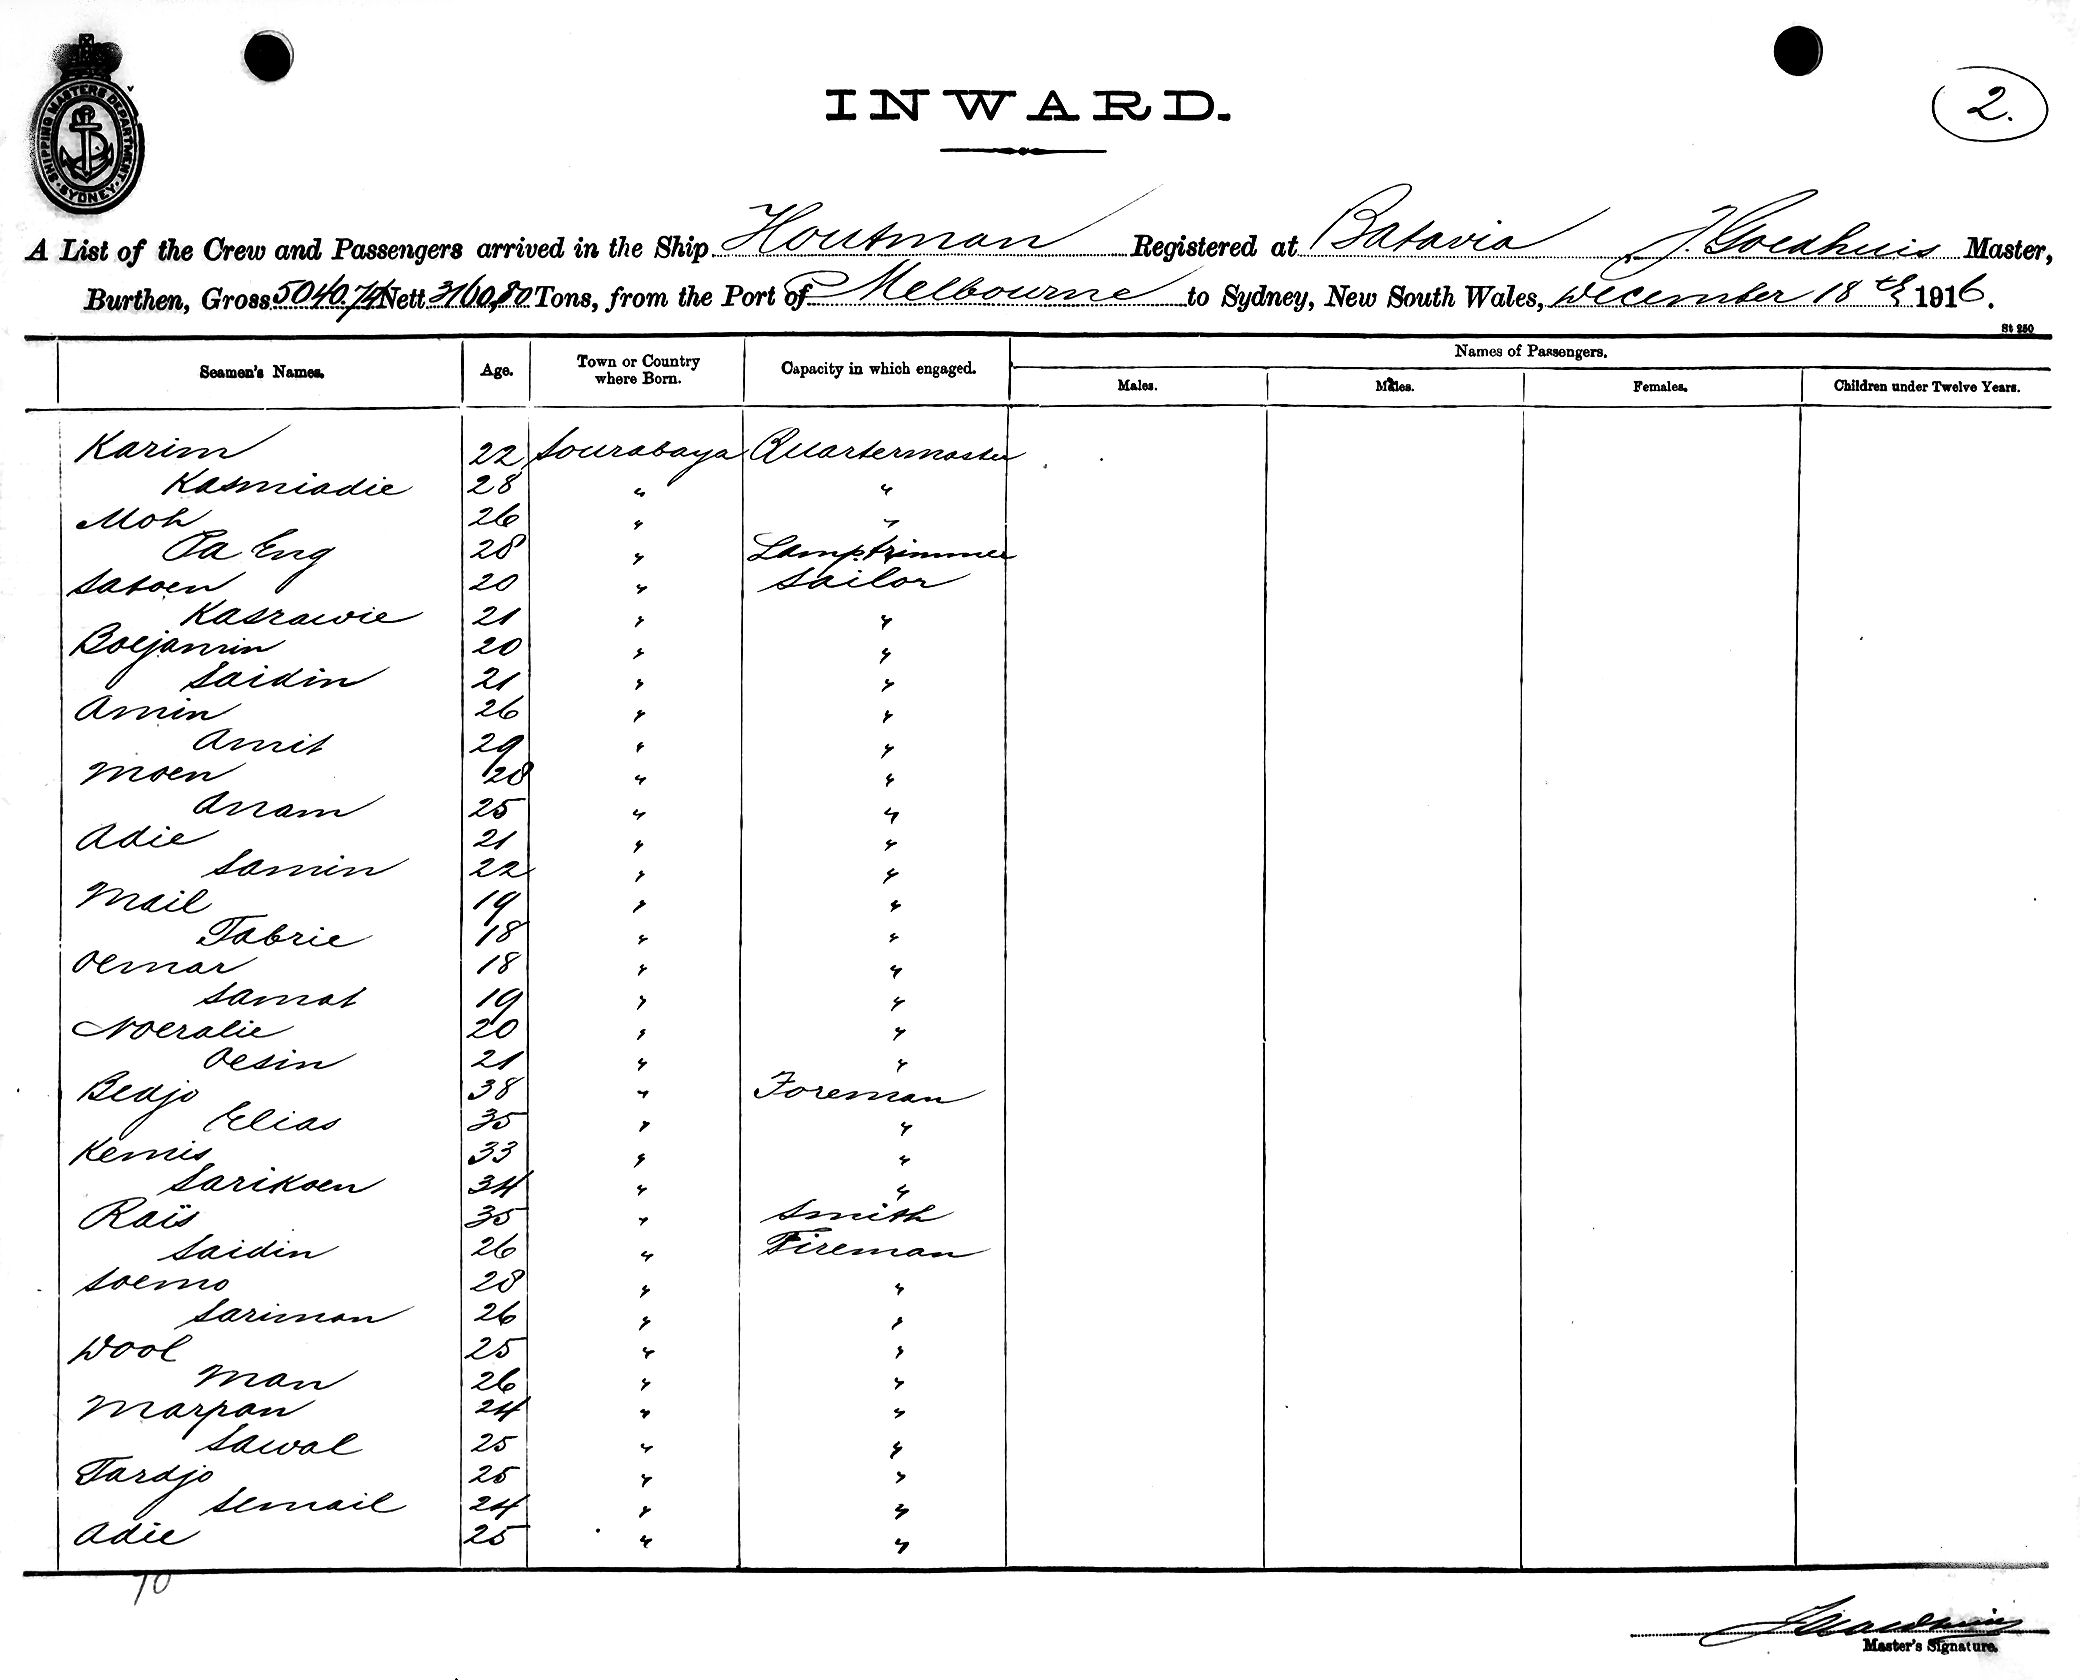 SHIPPING MASTERS DEPARTMENT
SYDNEY
INWARD.
2.
A List of the Crew and Passengers arrived in the Ship Houtman Registered at Batavia, J. Goedhuis Master,
Burthen, Gross 5040.74 Nett 3160,80 Tons, from the Port of Melbourne to Sydney, New South Wales, December 18th 1916.
St 250
Seamen's Names. Age. Town or Country where Born. Capacity in which engaged. Names of Passengers.
Males. Males. Females. Children under Twelve Years.
Karim 22 Sourabaya Quartermaster
Kasmiadie 28 " "
Moh 26 " "
Pa Eng 28 " Lamptrimmer
Satoen 20 " Sailor
Kasrawie 21 " "
Boejamin 20 " "
Saidin 21 " "
Amin 26 " "
Amit 29 " "
Moen 28 " "
Anam 25 " "
Adie 21 " "
Samin 22 " "
Mail 19 " "
Tabrie 18 " "
Oemar 18 " "
Samat 19 " "
Noeralie 20 " "
Oesin 21 " "
Bedjo 38 " Foreman
Elias 35 " "
Kemis 33 " "
Sarikoen 34 " "
Raïs 35 " Smith
Saidin 26 " Fireman
Soemo 28 " "
Sariman 26 " "
Wool 25 " "
Man 26 " "
Marpan 24 " "
Sawal 25 " "
Tardjo 25 " "
Semail 24 " "
Adie 25 " "
70
J Goedhuis
Master's Signature.